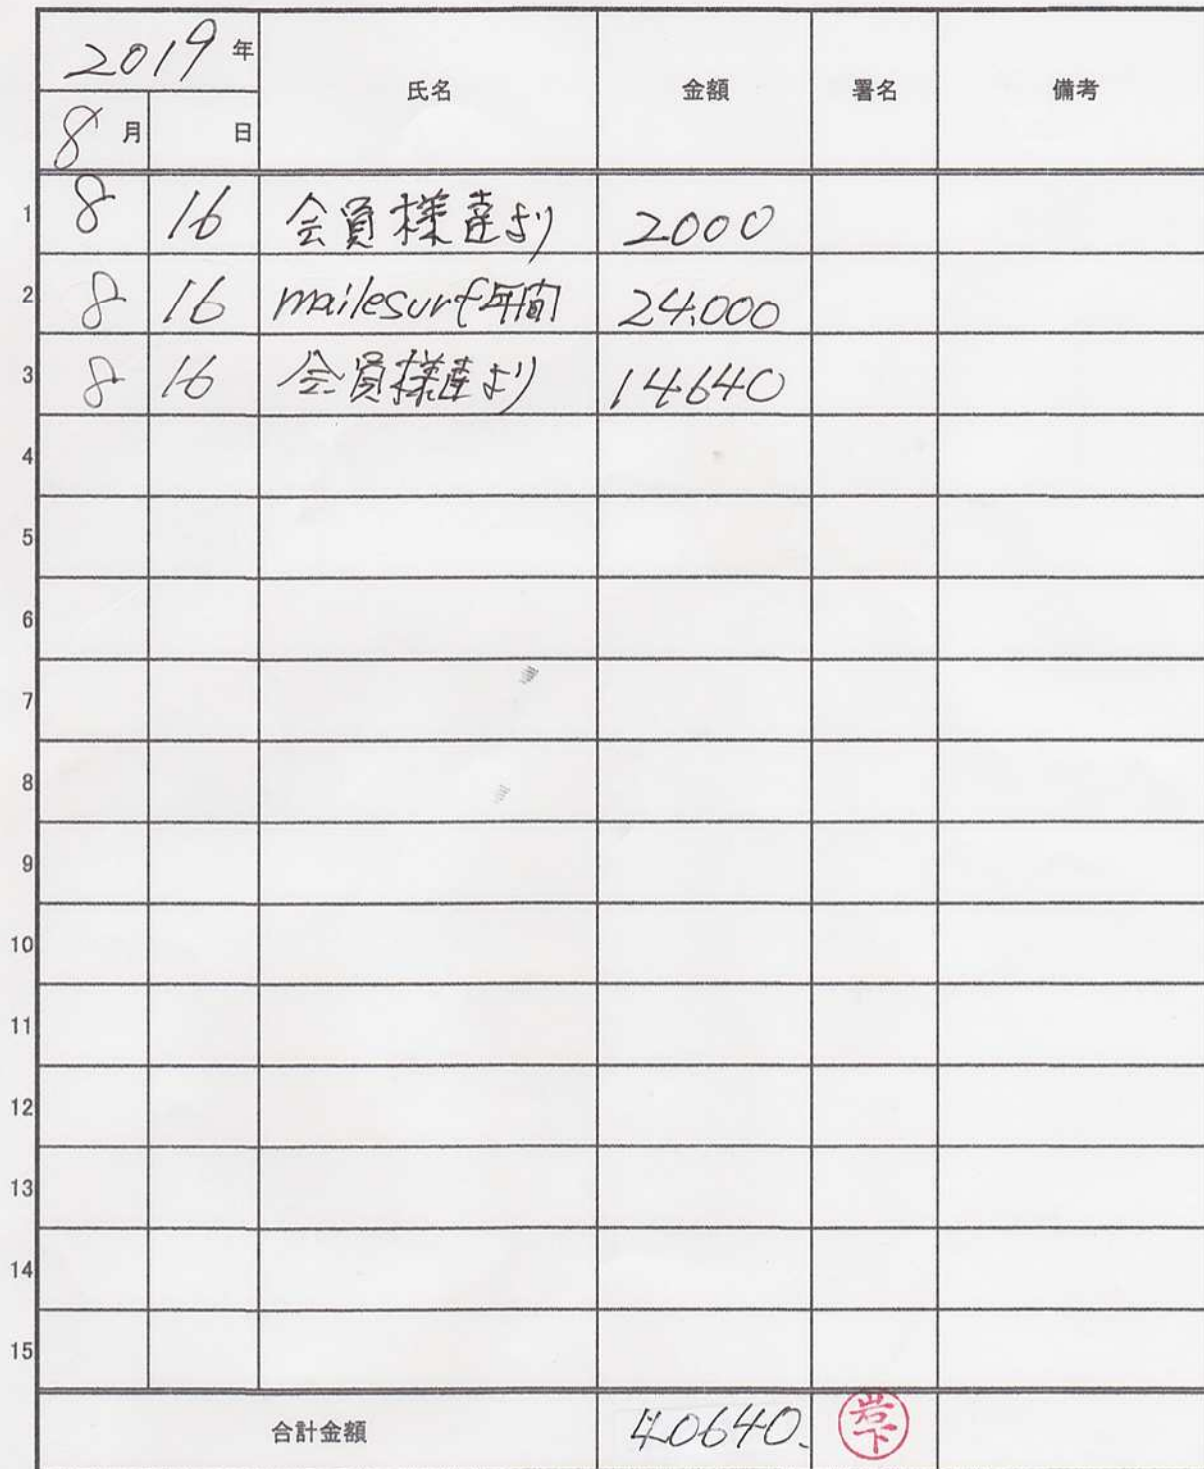 2019年 氏名 金額 署名 備考
8月 日
1 8 16 会員様達より 2000
2 8 16 mailesurf年間 24,000
3 8 16 会員様達より 14640
4
5
6
7
8
9
10
11
12
13
14
15
合計金額 40640. 岩下